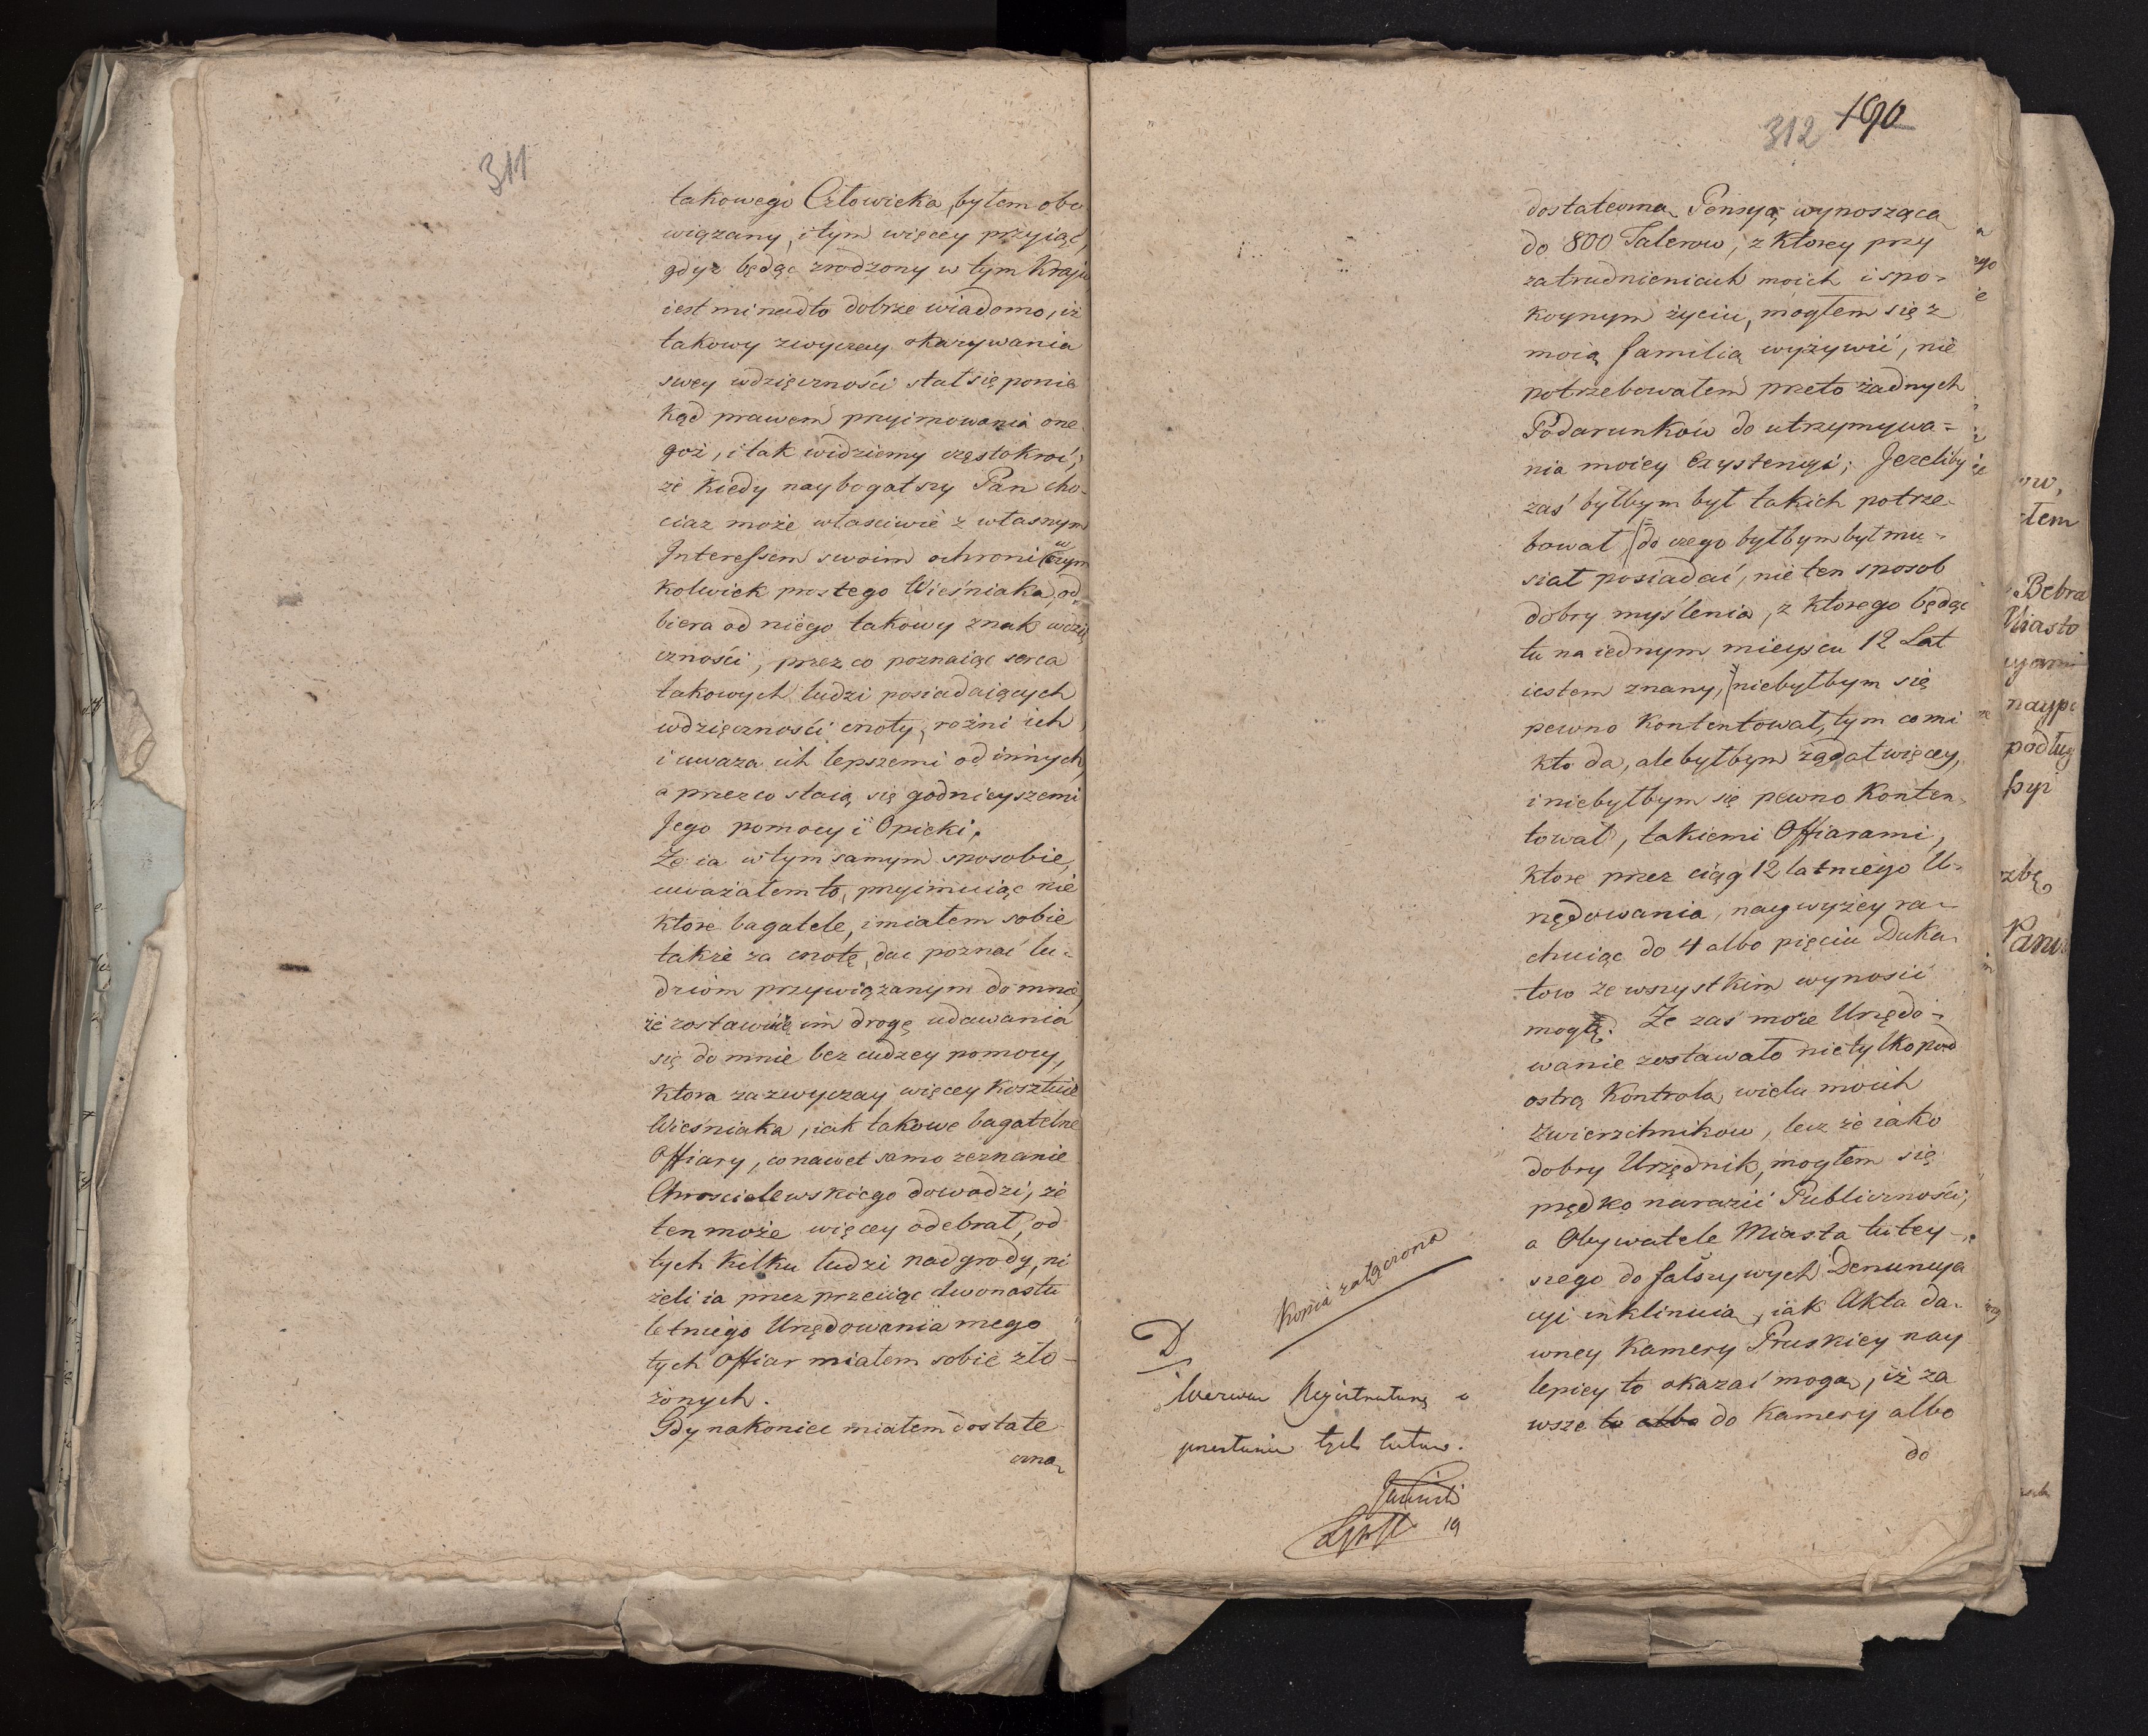 311
takowego Człowieka, byłem obo
wiązany, i tym więcey przyiąć,
gdyż będąc zrodzony w tym Kraju
iest mi nadto dobrze wiadomo, iż
takowy zwyczay okazywania
swey wdzięczności stał się ponie
kąd prawem przyimowania one
goż, i tak widziemy częstokroć,
że kiedy naybogatszy Pan cho-
ciaz może własciwie z własnym
Interessem swoim ochronić w czym
kolwiek prostego Wieśniaka, od,
biera od niego takowy znak wdzię
czności, przez co poznaiąc serca
takowych ludzi posiadaiących
wdzięczności cnoty, rożni ich
i uważa ich lepszemi od innych,
a przezco staią się godnieyszemi
Jego pomocy i Opieki.
Że ia w tym samym sposobie,
uważałem to, przyimuiąc nie
ktore bagatele, i miałem sobie
także za cnotę, dac poznać lu-
dziom przywiązanym do mnie,
że zostawię im drogę udawania
się do mnie bez cudzey pomocy,
ktora zazwyczay więcey kosztuie
Wieśniaka, iak takowe bagatelne
Offiary, co nawet samo zeznanie
Chroscielewskiego dowodzi, że
ten może więcey odebrał, od
tych kilku ludzi nadgrody, ni
żeli ia przez przeciąg dwonastu
letniego Urzędowania mego
tych Offiar miałem sobie zło-
żonych.
Gdy nakoniec miałem dostate
czną
312 190
dostateczną Pensyą wynoszącą
do 800 Talerow, z ktorey przy
zatrudnieniach moich i spo-
koynym życiu, mogłem się z
moią familią wyżywić, nie
potrzebowałem przeto żadnych
Podarunków do utrzymywa-
nia moiey Exystencyi; Jezeliby
zaś byłbym był takich potrze-
bował, do czego byłbym był mu-
siał posiadać, nie ten sposob
dobry myślenia, z ktorego będąc
tu na iednym mieyscu 12 Lat
iestem znany, niebyłbym się
pewno kontentował, tym co mi
kto da, ale byłbym żądał więcey,
i niebyłbym się pewno konten-
tował, takiemi Offiarami,
ktore przez ciąg 12 latniego U-
rzędowania, naywyżey ra-
chuiąc do 4 albo pięciu Duka-
tow ze wszystkim wynosić
mogą. Że zaś moie Urzędo-
wanie zostawało nietylko pod
ostrą Kontrolą wielu moich
Zwierzchnikow, lecz że iako
dobry Urzędnik, mogłem się
prędko narazić Publiczności,
a Obywatele Miasta tutey-
szego do fałszywych Denuncya
cyi inklinuią, iak Akta da-
wney Kamery Pruskiey nay
lepiey to okazać mogą, iż za
wsze to albo do Kamery albo
do
Kopia załączona
D
Wezwać Registraturę o